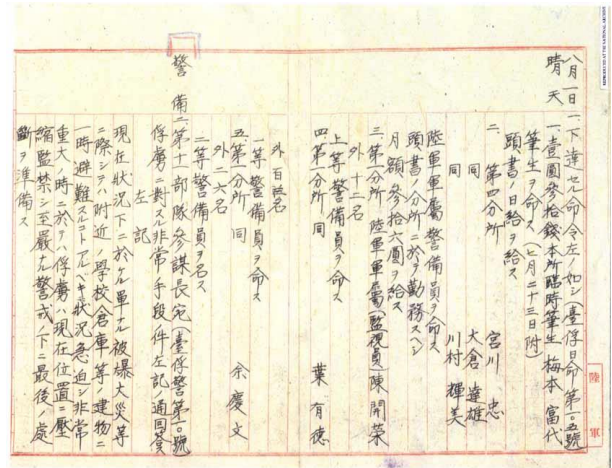 八月一日 一、下達セル命令左ノ如シ(臺俘日命第一〇五號)
晴天 一、壹圓參拾錢 本所臨時筆生 梅本 富代
筆生ヲ命ス(七月二十三日附)
頭書ノ日給ヲ給ス
二、第四分所 宮川 忠
同 大倉 達雄
同 川村 輝美
陸軍軍属警備員ヲ命ス
頭書ノ分所ニ於テ勤務スヘシ
月額參拾六圓ヲ給ス
三、第一分所 陸軍軍属(監視員)陳 開榮
外十二名
上等警備員ヲ命ス
四、第一分所 同 葉 有德
外百五名
一等警備員ヲ命ス
五、第一分所 同 余 慶文
外二六名
二等警備員ヲ命ス
警備 二、第十一部隊参謀長宛(臺俘警第一〇號)
俘虜ニ對スル非常手段ノ件左記ノ通回答ス
左記
現在状況下ニ於ケル單ナル被爆火災等
ニ際シテハ附近ノ學校倉庫等ノ建物ニ
一時避難スルコトアルヘキ状況急迫シ非常
重大ノ時ニ於テハ俘虜ハ現在位置ニ壓
縮監禁シ至嚴ナル警戒ノ下ニ最後ノ處
斷ヲ準備ス
陸軍
REPRODUCED AT THE NATIONAL ARCHIVES